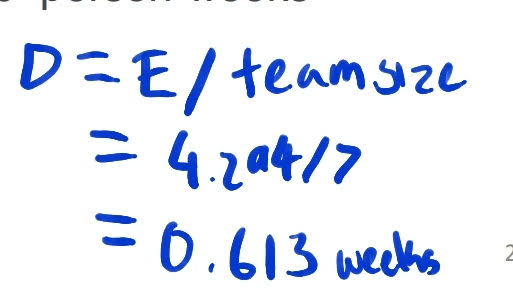 person-weeks
D = E / team size
= 4.294/7
= 0.613 weeks
2